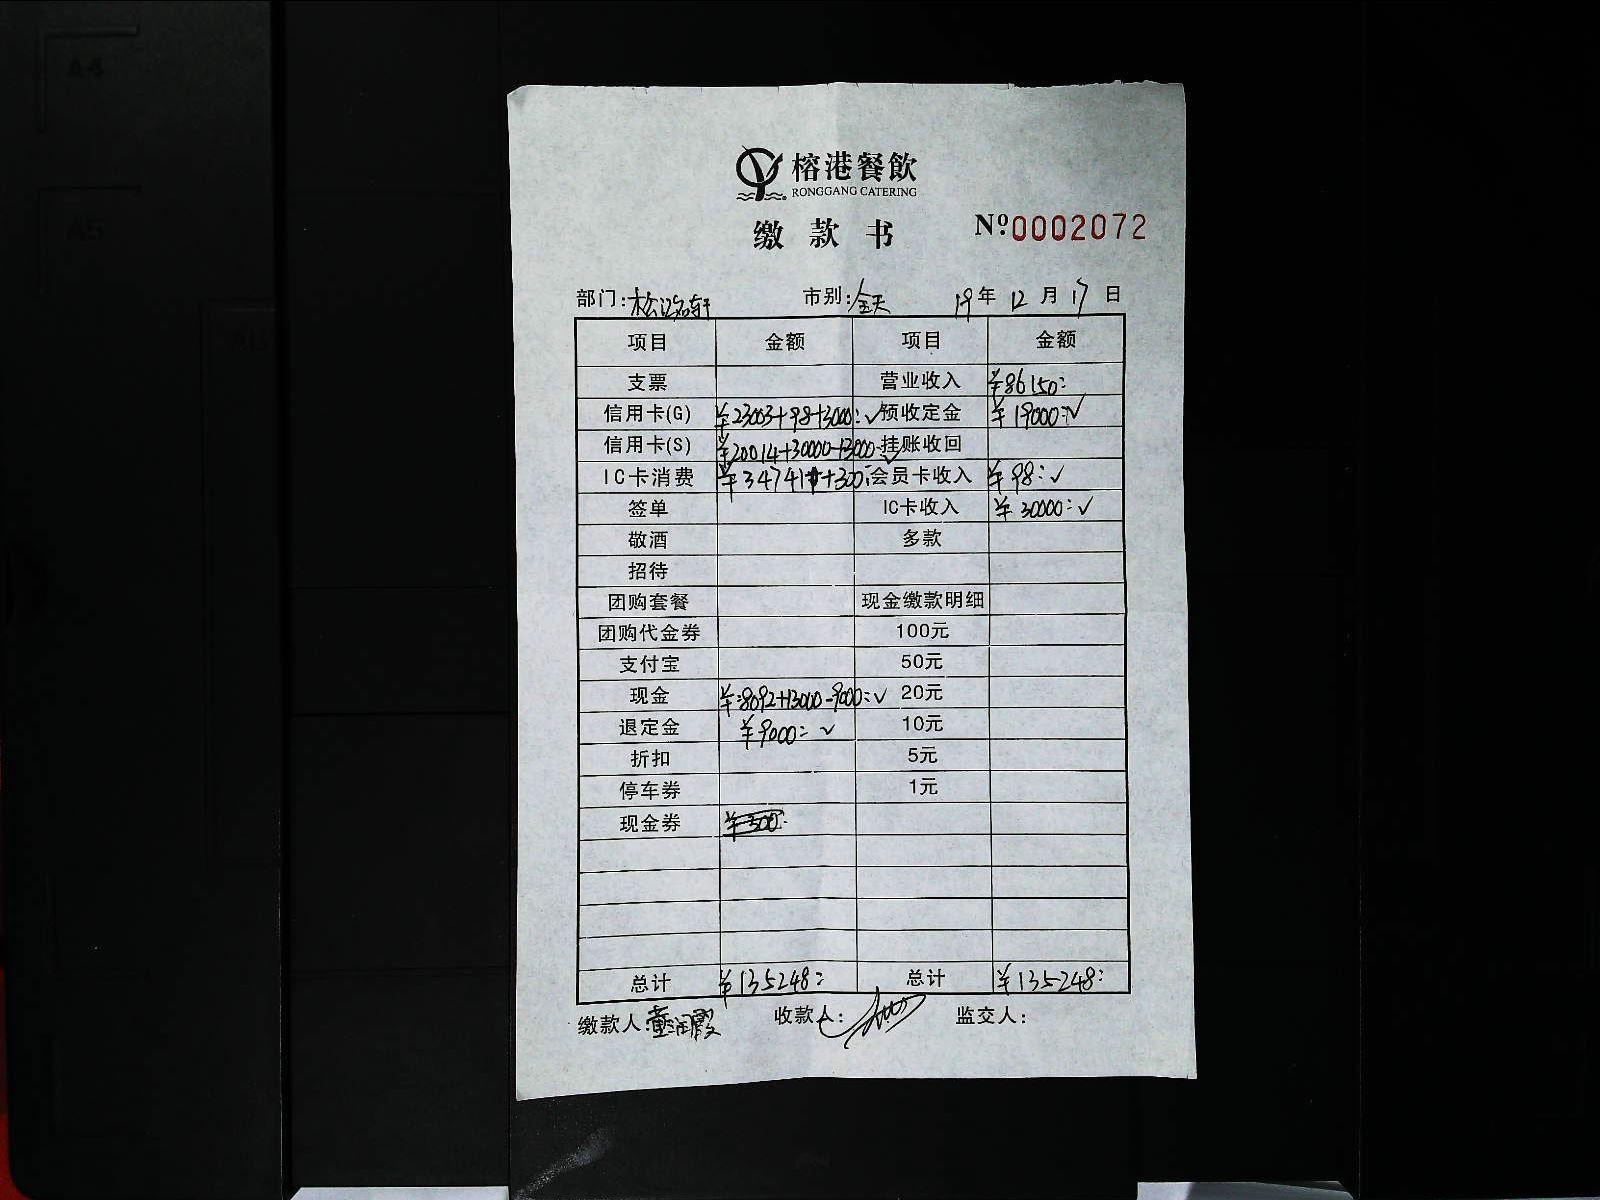 榕港餐飲
RONGGANG CATERING
缴款书 Nº:0002072
部门: 市别:全天 19年12月17日
项目 金额 项目 金额
支票 营业收入 ¥86150:
信用卡(G) ¥23003+98+3000:✓ 预收定金 ¥19000:✓
信用卡(S) ¥20014+30000-13000:✓ 挂账收回
IC卡消费 ¥34741+300: 会员卡收入 ¥98:✓
签单 IC卡收入 ¥30000:✓
敬酒 多款
招待
团购套餐 现金缴款明细
团购代金券 100元
支付宝 50元
现金 ¥:8092+13000-9000:✓ 20元
退定金 ¥9000:✓ 10元
折扣 5元
停车券 1元
现金券 ¥300:
总计 ¥135248: 总计 ¥135248:
缴款人:董润霞 收款人: 监交人: